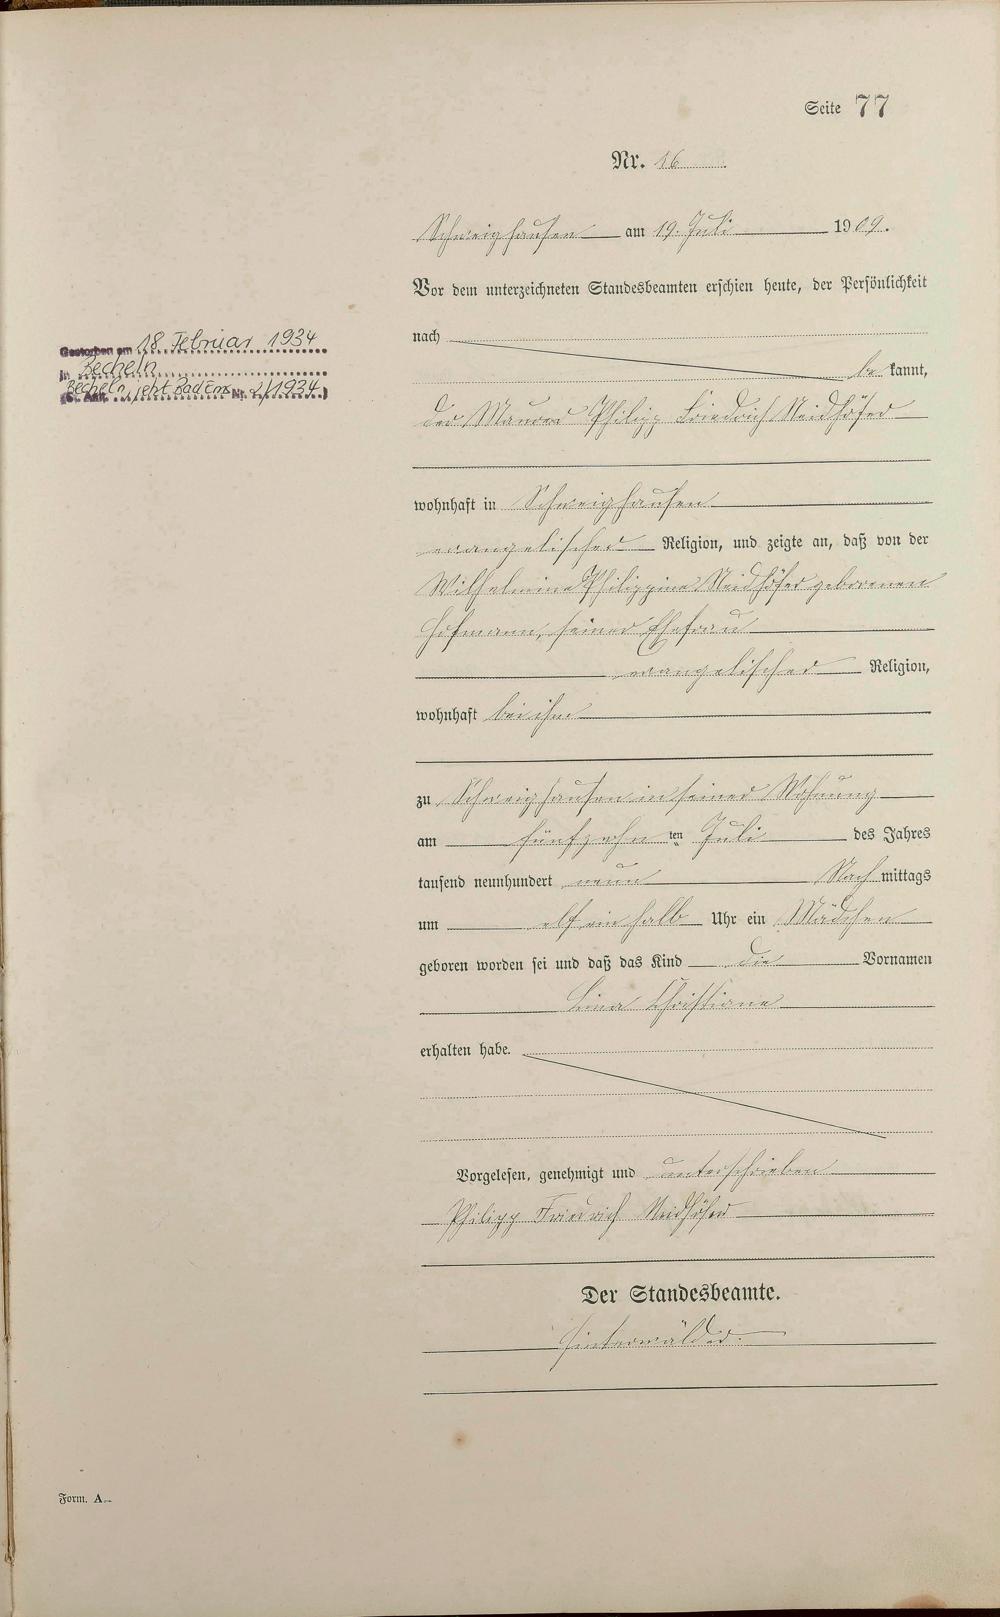 Seite 77
Nr. 16
Schweighausen am 19. Juli 1909.
Vor dem unterzeichneten Standesbeamten erschien heute, der Persönlichkeit
nach
be kannt,
der Maurer Philipp Friedrich Neidhöfer
wohnhaft in Schweighausen
evangelischer Religion, und zeigte an, daß von der
Wilhelmine Philippine Neidhöfer geborenen
Hofmann, seiner Ehefrau
evangelischer Religion,
wohnhaft bei ihm
zu Schweighausen in seiner Wohnung
am fünfzehn ten Juli des Jahres
tausend neunhundert neun Nach mittags
um elf ein halb Uhr ein Mädchen
geboren worden sei und daß das Kind die Vornamen
Lina Christiane
erhalten habe.
Vorgelesen, genehmigt und unterschrieben
Philipp Friedrich Neidhöfer
Der Standesbeamte.
Hinterwälder.
Gestorben am 18. Februar 1934
in Becheln
(St. Amt. Becheln, jetzt Bad Ems Nr. 2/1934)
Form. A.